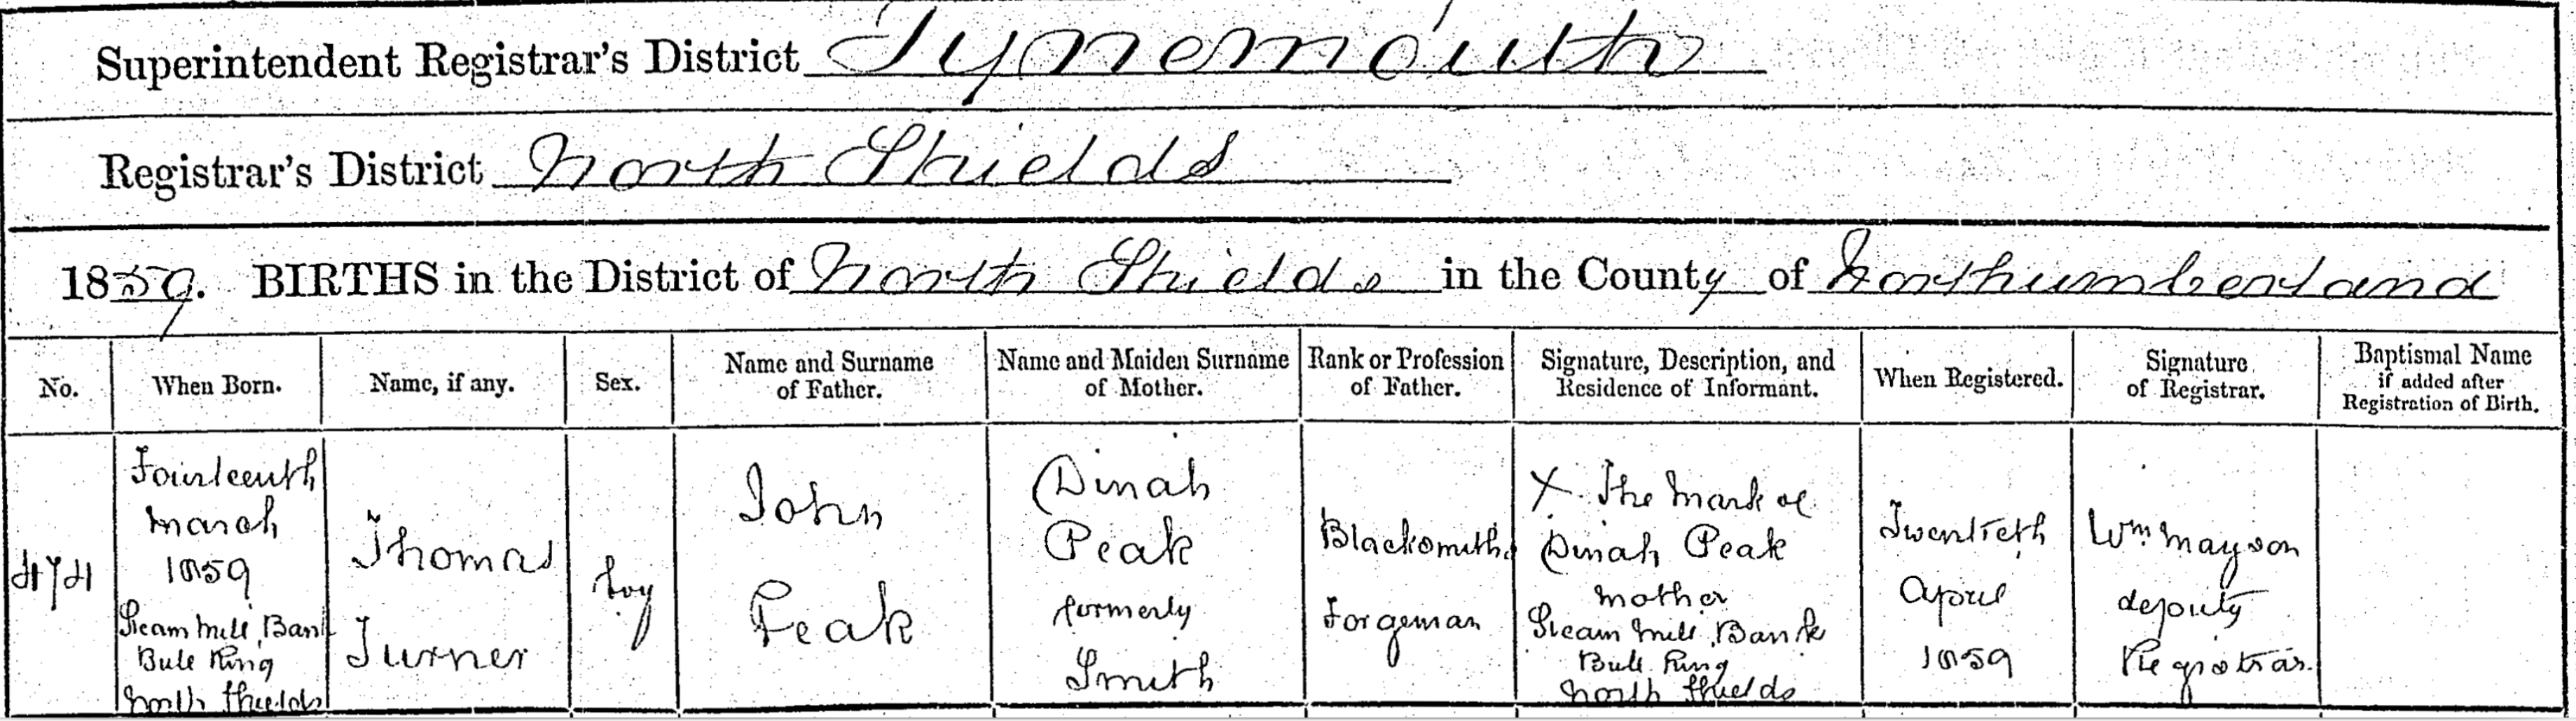 Superintendent Registrar's District Tynemouth
Registrar's District North Shields
1859. BIRTHS in the District of North Shields in the County of Northumberland
No.
When Born.
Name, if any.
Sex.
Name and Surname
of Father.
Name and Maiden Surname
of Mother.
Rank or Profession
of Father.
Signature, Description, and
Residence of Informant.
When Registered.
Signature
of Registrar.
Baptismal Name
if added after
Registration of Birth.
474
Fourteenth
March
1859
Steam Mill Bank
Bull Ring
North Shields
Thomas
Turner
boy
John
Peak
Dinah
Peak
formerly
Smith
Blacksmith
Forgeman
X The mark of
Dinah Peak
mother
Steam Mill Bank
Bull Ring
North Shields
Twentieth
April
1859
Wm Mayson
deputy
Registrar.